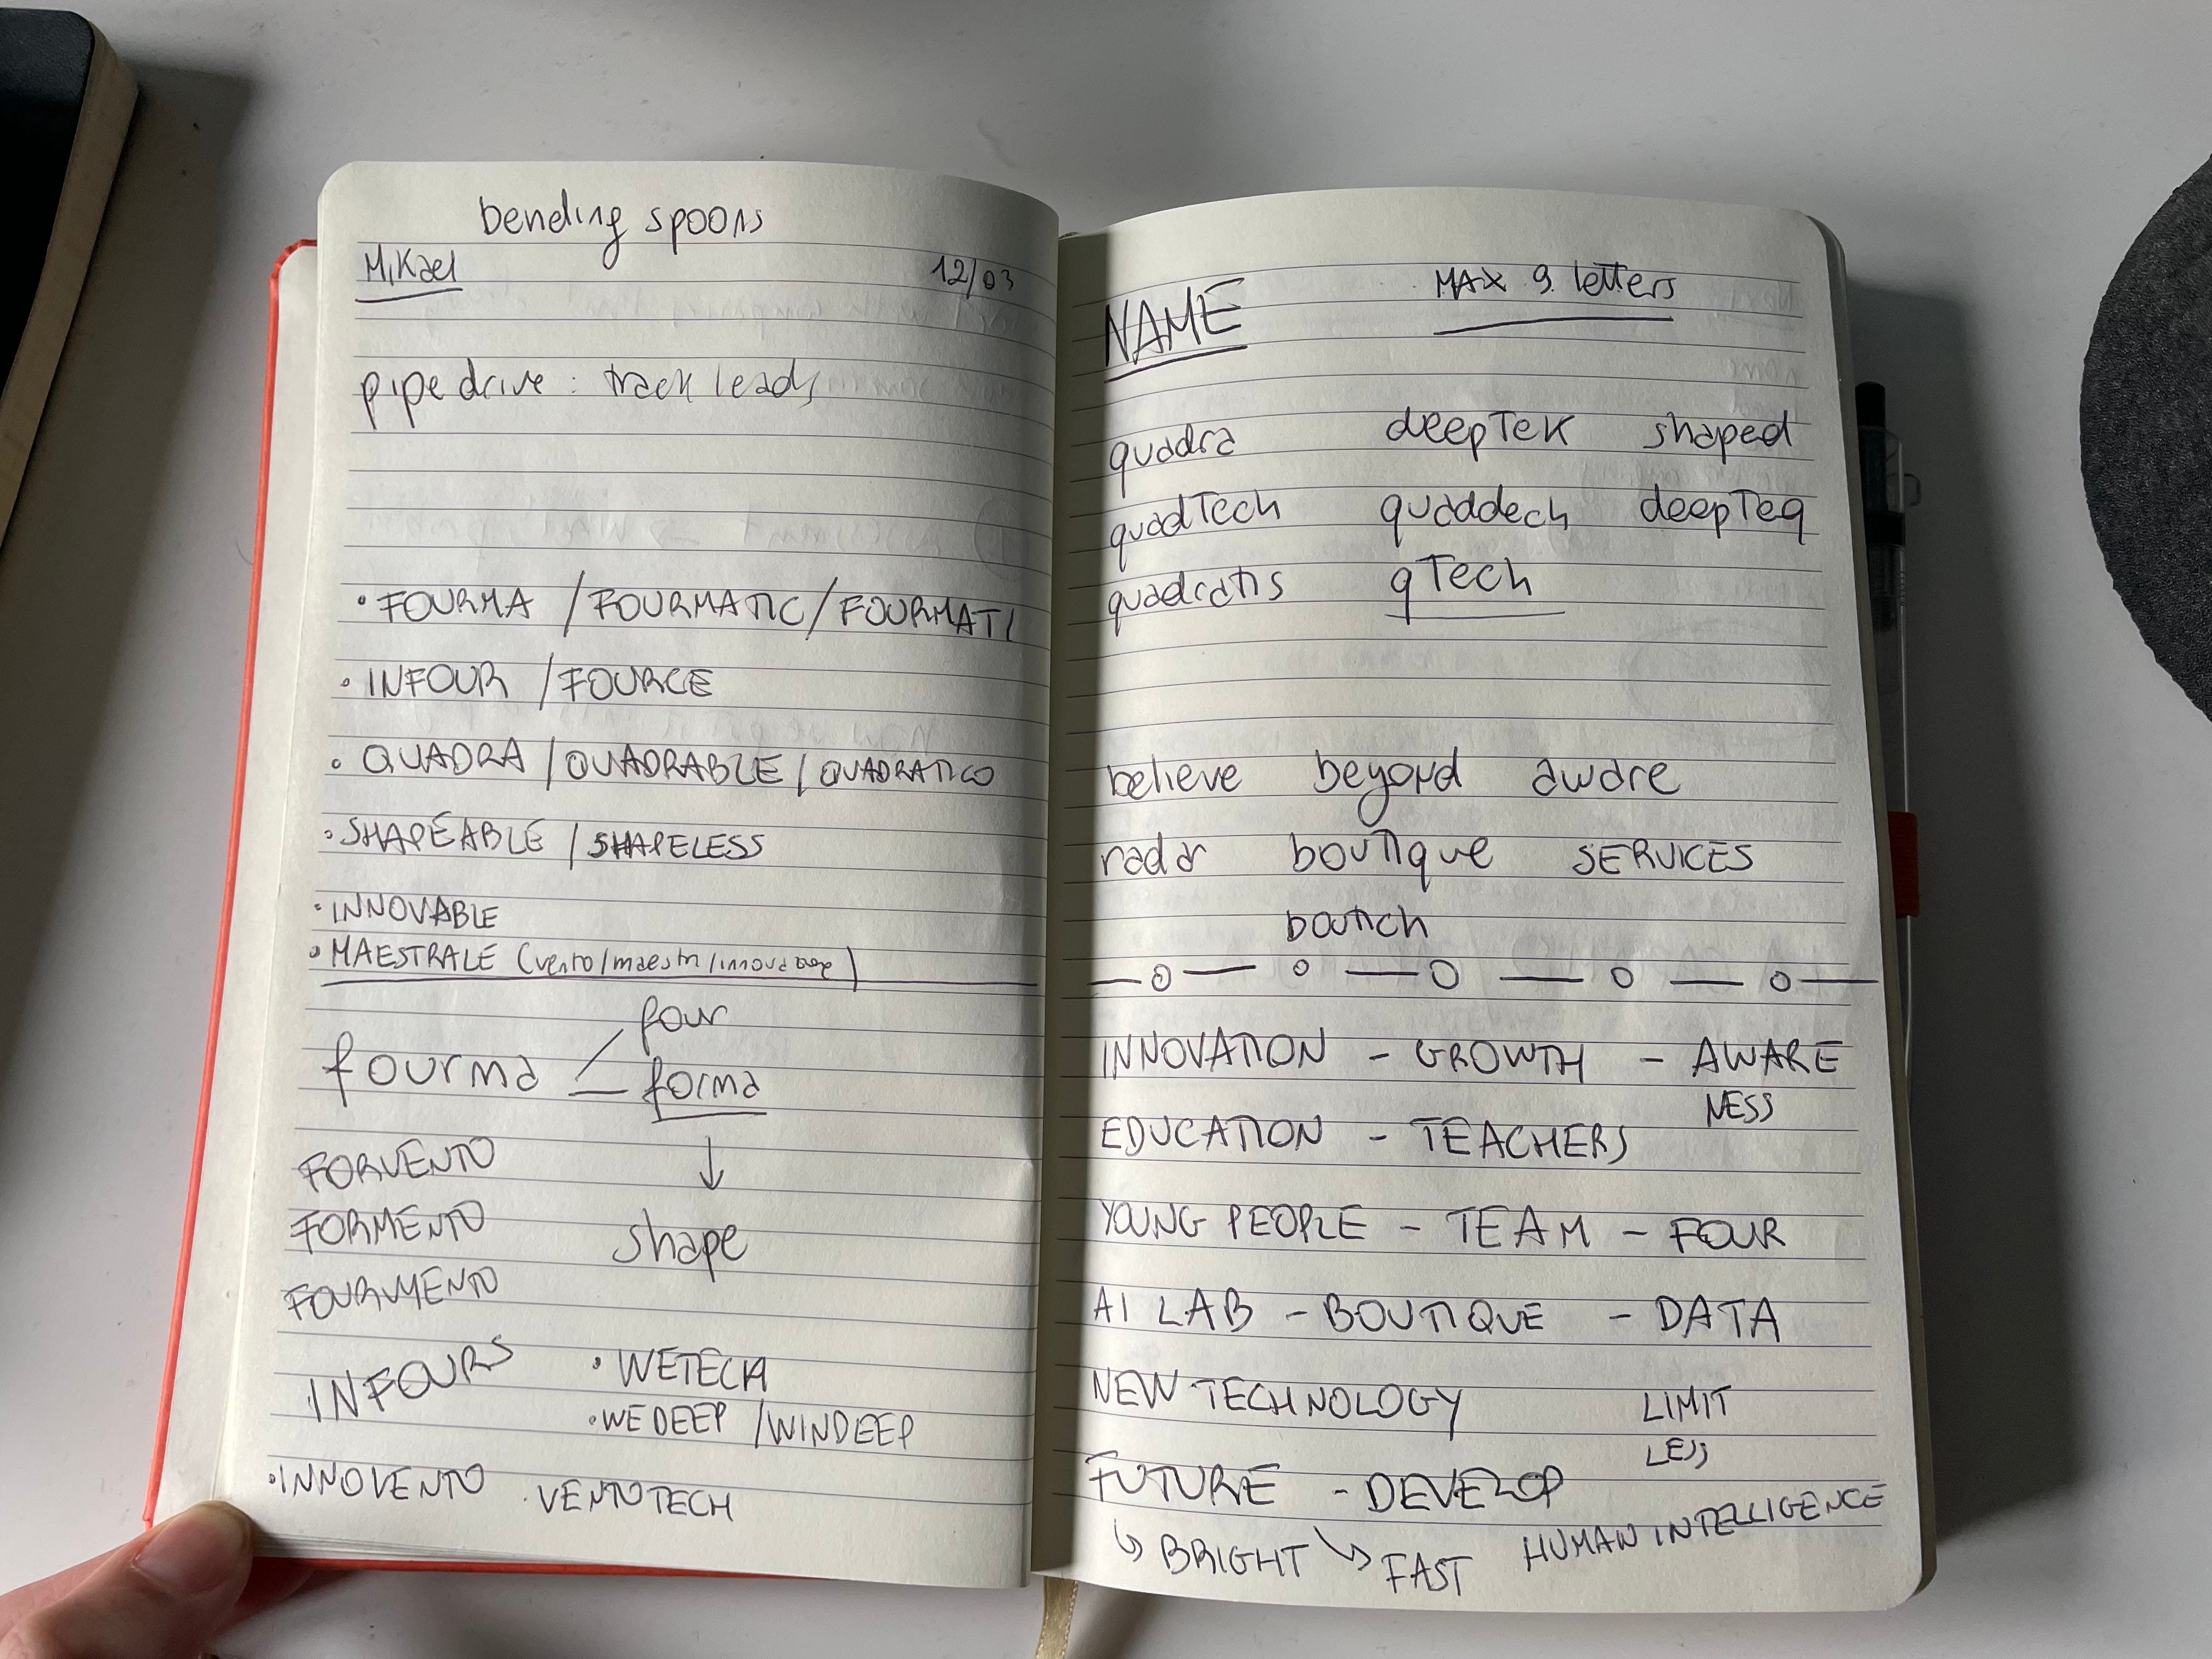 bending spoons
Mikael 12/03
pipedrive: track leads
• FOURMA / FOURMATIC / FOURMATI
• INFOUR / FOURCE
• QUADRA / QUADRABLE / QUADRATICO
• SHAPEABLE / SHAPELESS
• INNOVABLE
• MAESTRALE (vento/maestri/innovazione)
four
fourma
forma
FORVENTO
↓
FORMENTO
shape
FOURMENTO
INFOURS
• WETECH
• WEDEEP / WINDEEP
• INNOVENTO • VENTOTECH
NAME MAX 9 letters
quadra deepTeK shaped
quadTech quaddech deepTeq
quadratis qTech
believe beyond aware
radar boutique SERVICES
boutich
INNOVATION - GROWTH - AWARE
NESS
EDUCATION - TEACHERS
YOUNG PEOPLE - TEAM - FOUR
AI LAB - BOUTIQUE - DATA
NEW TECHNOLOGY LIMIT
LESS
FUTURE - DEVELOP
↳ BRIGHT ↘ FAST HUMAN INTELLIGENCE